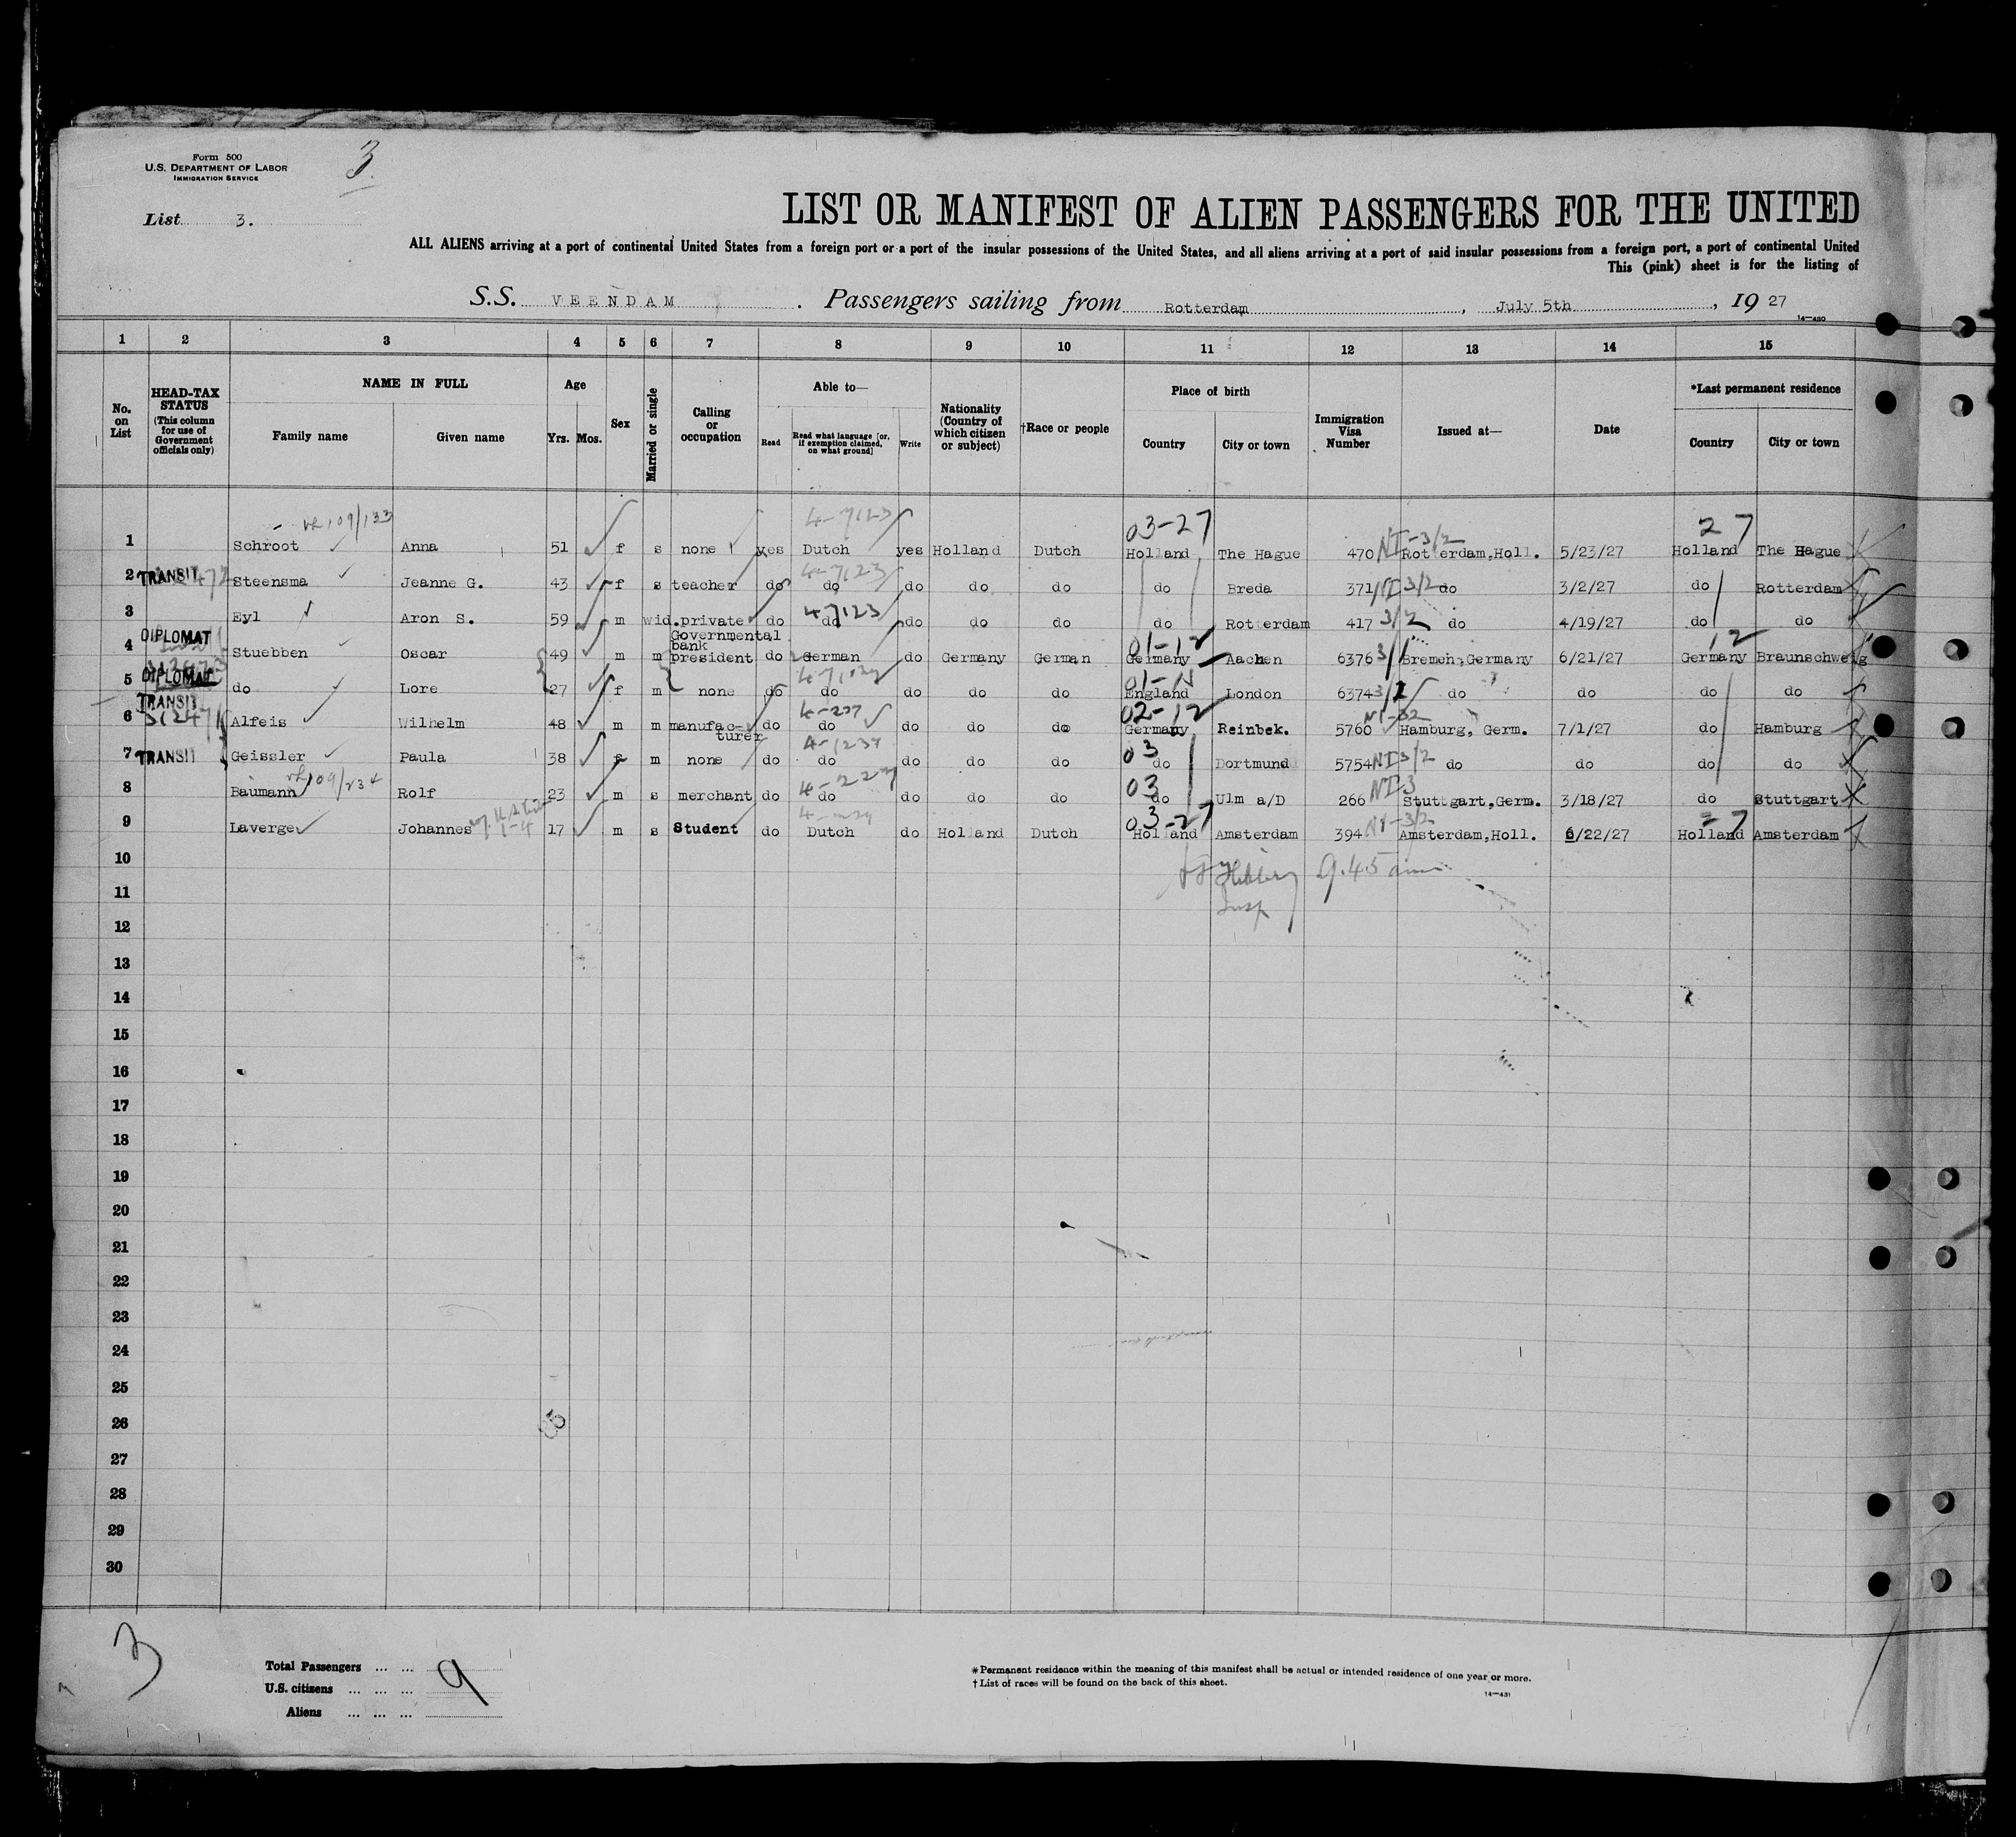 Form 500
U.S. DEPARTMENT OF LABOR
IMMIGRATION SERVICE
3
List 3.
LIST OR MANIFEST OF ALIEN PASSENGERS FOR THE UNITED
ALL ALIENS arriving at a port of continental United States from a foreign port or a port of the insular possessions of the United States, and all aliens arriving at a port of said insular possessions from a foreign port, a port of continental United
This (pink) sheet is for the listing of
S.S. VEENDAM . Passengers sailing from Rotterdam , July 5th , 19 27
14—430
1 2 3 4 5 6 7 8 9 10 11 12 13 14 15
No. on List
HEAD-TAX STATUS (This column for use of Government officials only)
NAME IN FULL
Family name Given name
Age
Yrs. Mos.
Sex
Married or single
Calling or occupation
Able to—
Read Read what language [or, if exemption claimed, on what ground] Write
Nationality (Country of which citizen or subject)
†Race or people
Place of birth
Country City or town
Immigration Visa Number
Issued at—
Date
*Last permanent residence
Country City or town
109/133 4-7123 03-27 NI-3/2 27
1 Schroot Anna 51 f s none yes Dutch yes Holland Dutch Holland The Hague 470 Rotterdam,Holl. 5/23/27 Holland The Hague
4-7123
2 TRANSIT Steensma Jeanne G. 43 f s teacher do do do do do do Breda 371 NI 3/2 do 3/2/27 do Rotterdam
4-7123
3 Eyl Aron S. 59 m wid. private do do do do do do Rotterdam 417 3/2 do 4/19/27 do do
DIPLOMAT 01-12 12
4 Stuebben Oscar 49 m m Governmental bank president do German do Germany German Germany Aachen 6376 Bremen,Germany 6/21/27 Germany Braunschweig
DIPLOMAT
5 do Lore 27 f m none do do do do do England London 6374 do do do do
TRANSIT 4-237 02-12
6 Alfeis Wilhelm 48 m m manufac-turer do do do do do Germany Reinbek. 5760 Hamburg, Germ. 7/1/27 do Hamburg
4-1234 03
7 TRANSIT Geissler Paula 38 f m none do do do do do do Dortmund 5754 NI 3/2 do do do do
109/234 03 NI-3
8 Baumann Rolf 23 m s merchant do do do do do do Ulm a/D 266 Stuttgart,Germ. 3/18/27 do Stuttgart
1-4 03-27 27
9 Laverge Johannes 17 m s Student do Dutch do Holland Dutch Holland Amsterdam 394 Amsterdam,Holl. 6/22/27 Holland Amsterdam
10
9.45
11
Insp
12
13
14
15
16
17
18
19
20
21
22
23
24
25
26
27
28
29
30
3
Total Passengers ... ...
U.S. citizens ... ... ... 9
Aliens ... ... ...
*Permanent residence within the meaning of this manifest shall be actual or intended residence of one year or more.
†List of races will be found on the back of this sheet.
14—431